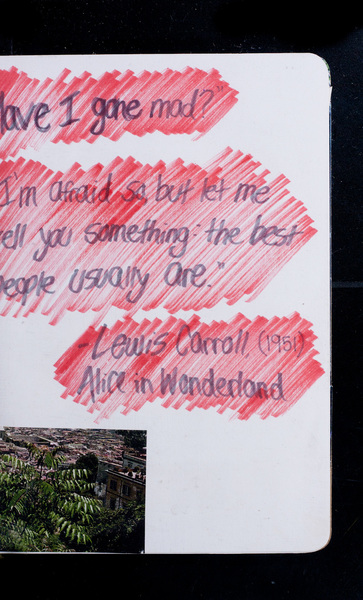 Have I gone mad?"
I'm afraid so, but let me
tell you something: the best
people usually are."
-Lewis Carroll, (1951)
Alice in Wonderland